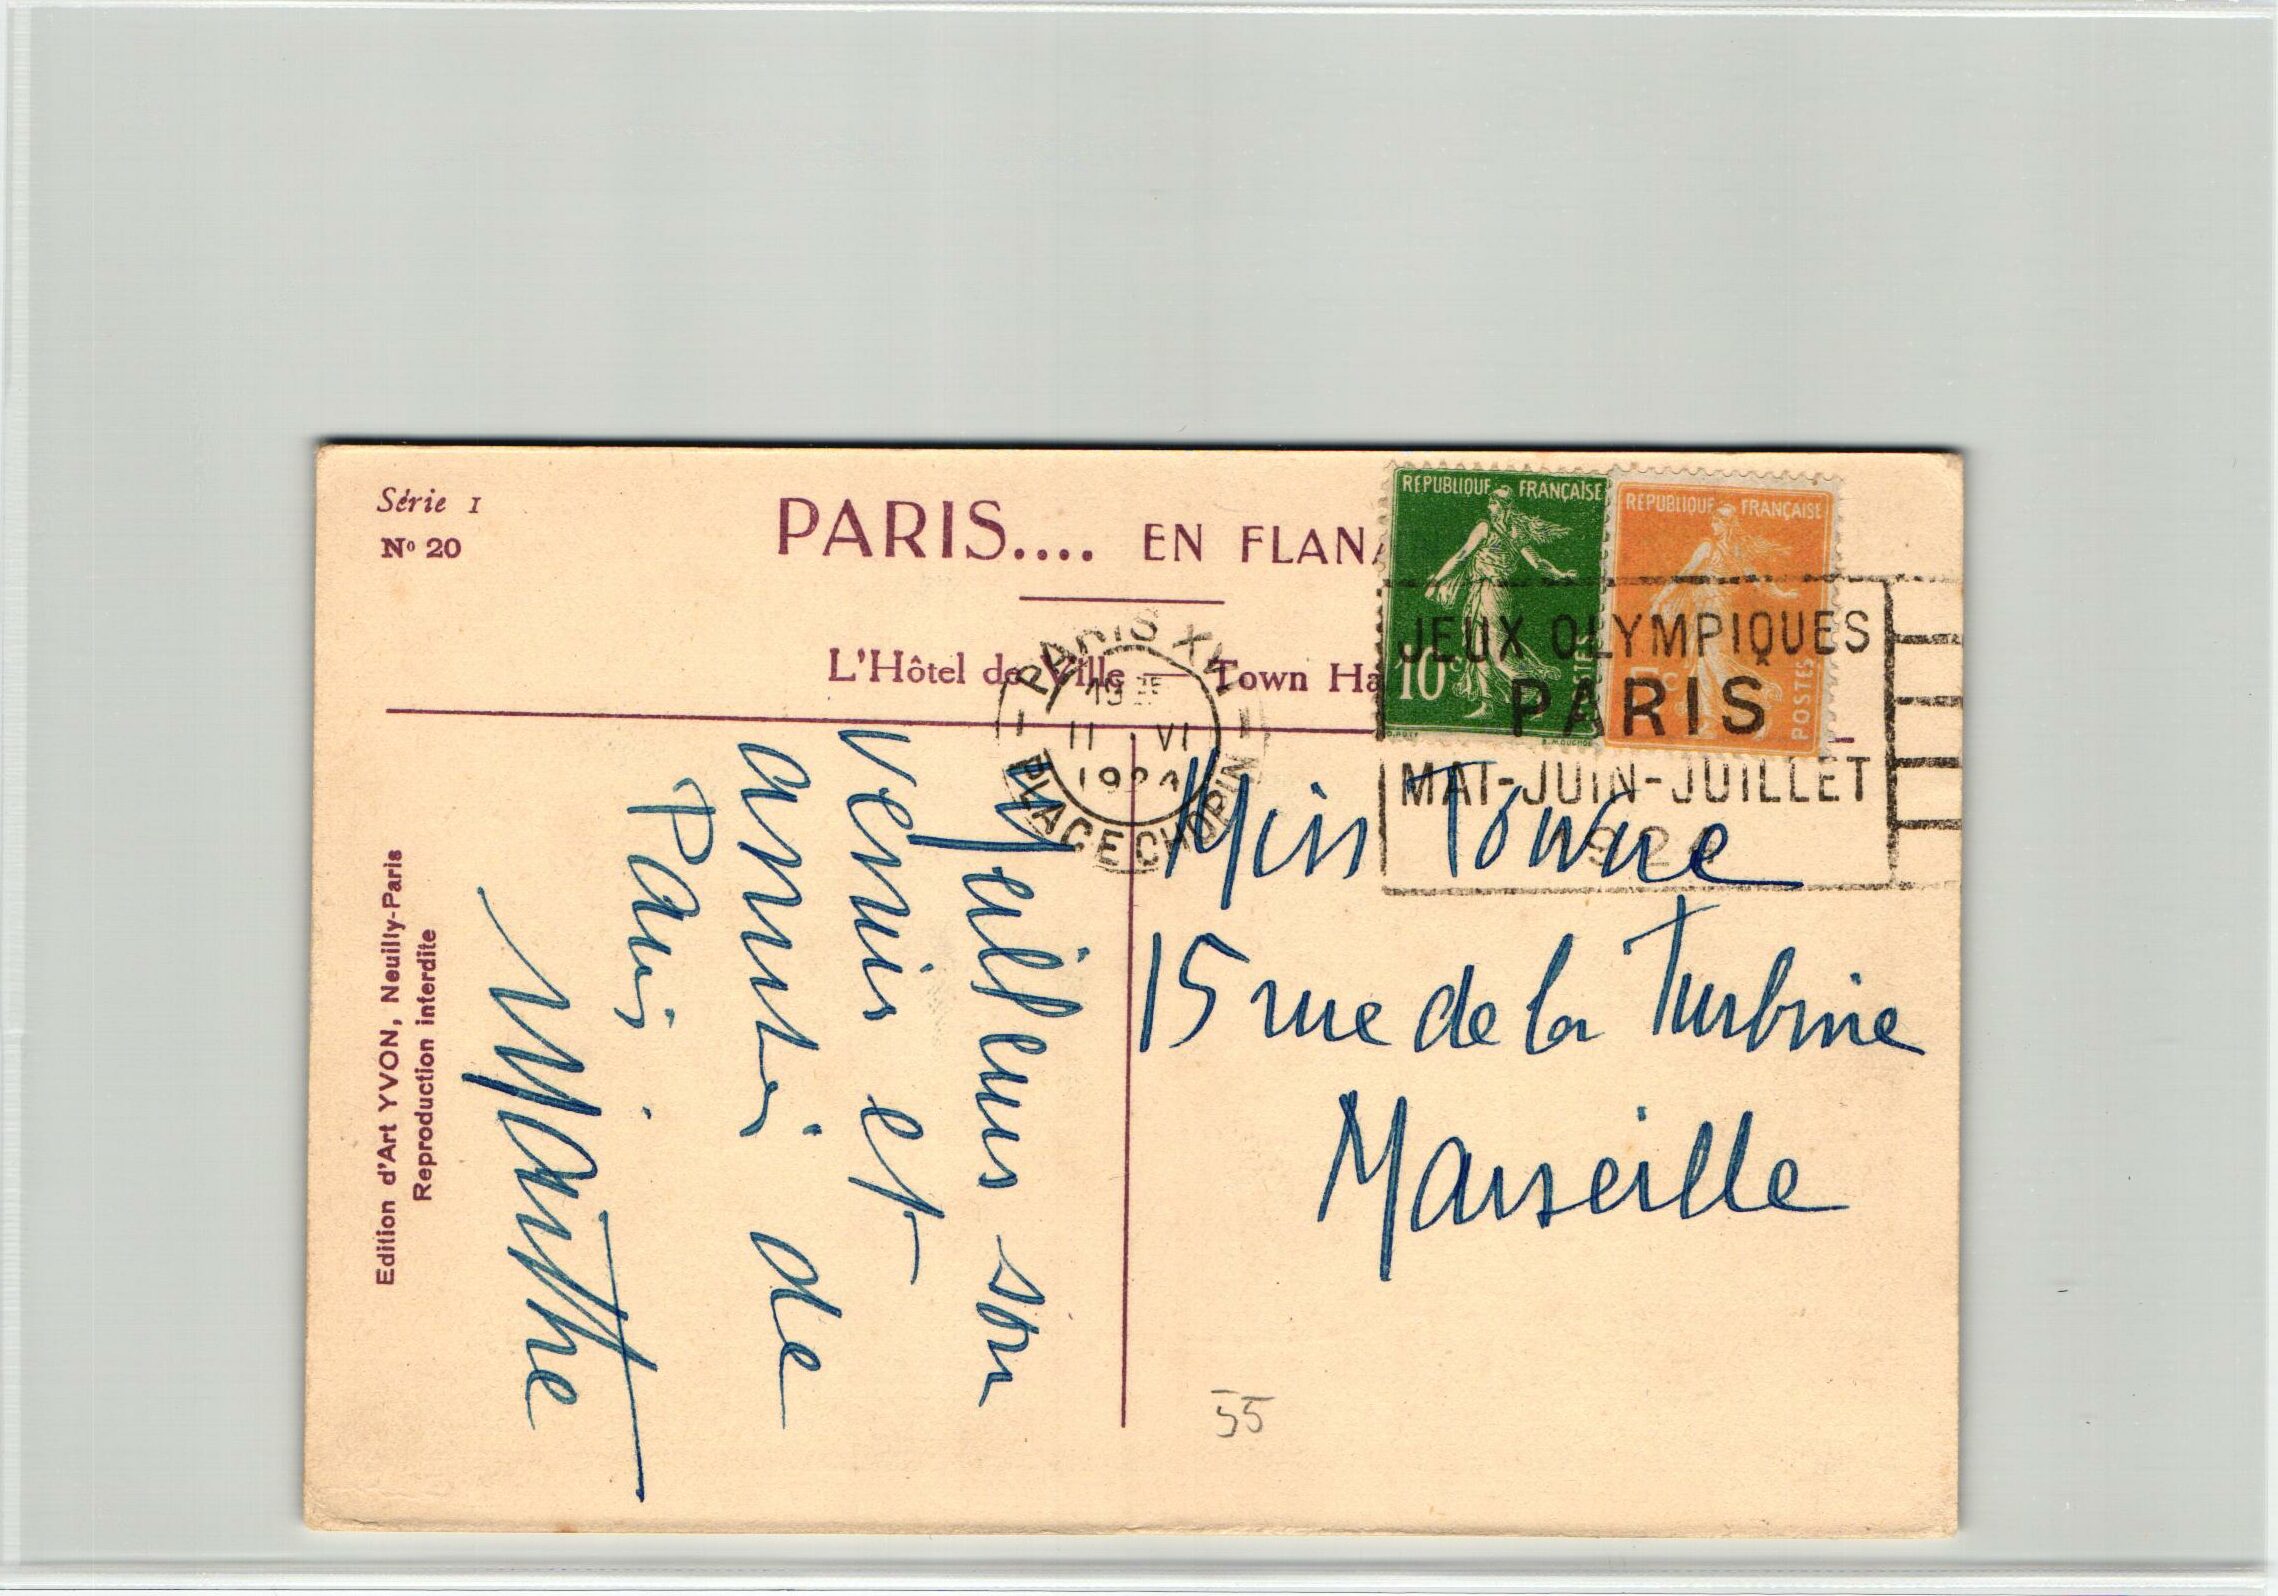 Série 1
Nº 20
PARIS.... EN FLANA
L'Hôtel de Ville — Town Ha
REPUBLIQUE FRANÇAISE
10c
POSTES
REPUBLIQUE FRANÇAISE
5c
POSTES
JEUX OLYMPIQUES
PARIS
MAI-JUIN-JUILLET
1924
PARIS XVI
11 VI
1924
PLACE CHOPIN
Meilleurs sou
venirs et
amitié de
Paris.
Marthe
Miss Towne
15 rue de la Turbine
Marseille
55
Edition d'Art YVON, Neuilly-Paris
Reproduction interdite